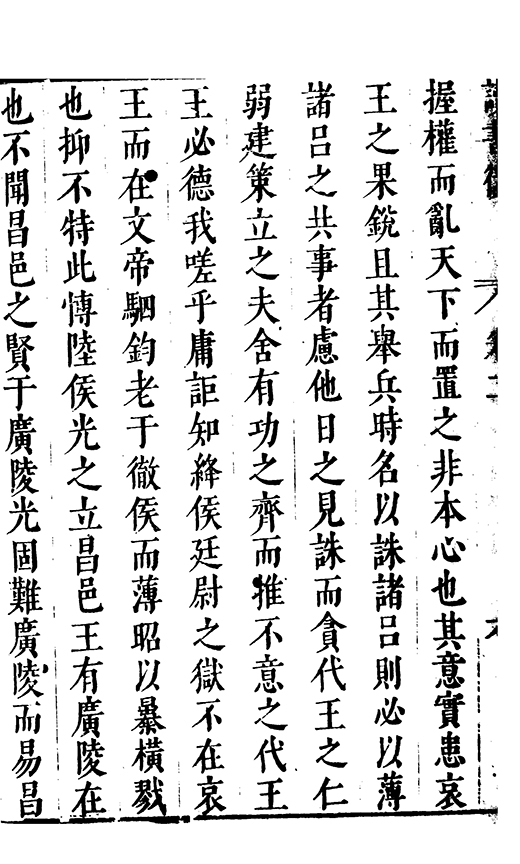 讀書後 卷二 六
握權而亂天下而置之非本心也其意實恚哀
王之果銳且其舉兵時名以誅諸呂則必以薄
諸呂之共事者慮他日之見誅而貪代王之仁
弱建策立之夫舍有功之齊而推不意之代王
王必德我嗟乎庸詎知絳侯廷尉之獄不在哀
王而在文帝駟鈞老于徹侯而薄昭以暴橫戮
也抑不特此博陸侯光之立昌邑王有廣陵在
也不聞昌邑之賢于廣陵光固難廣陵而易昌